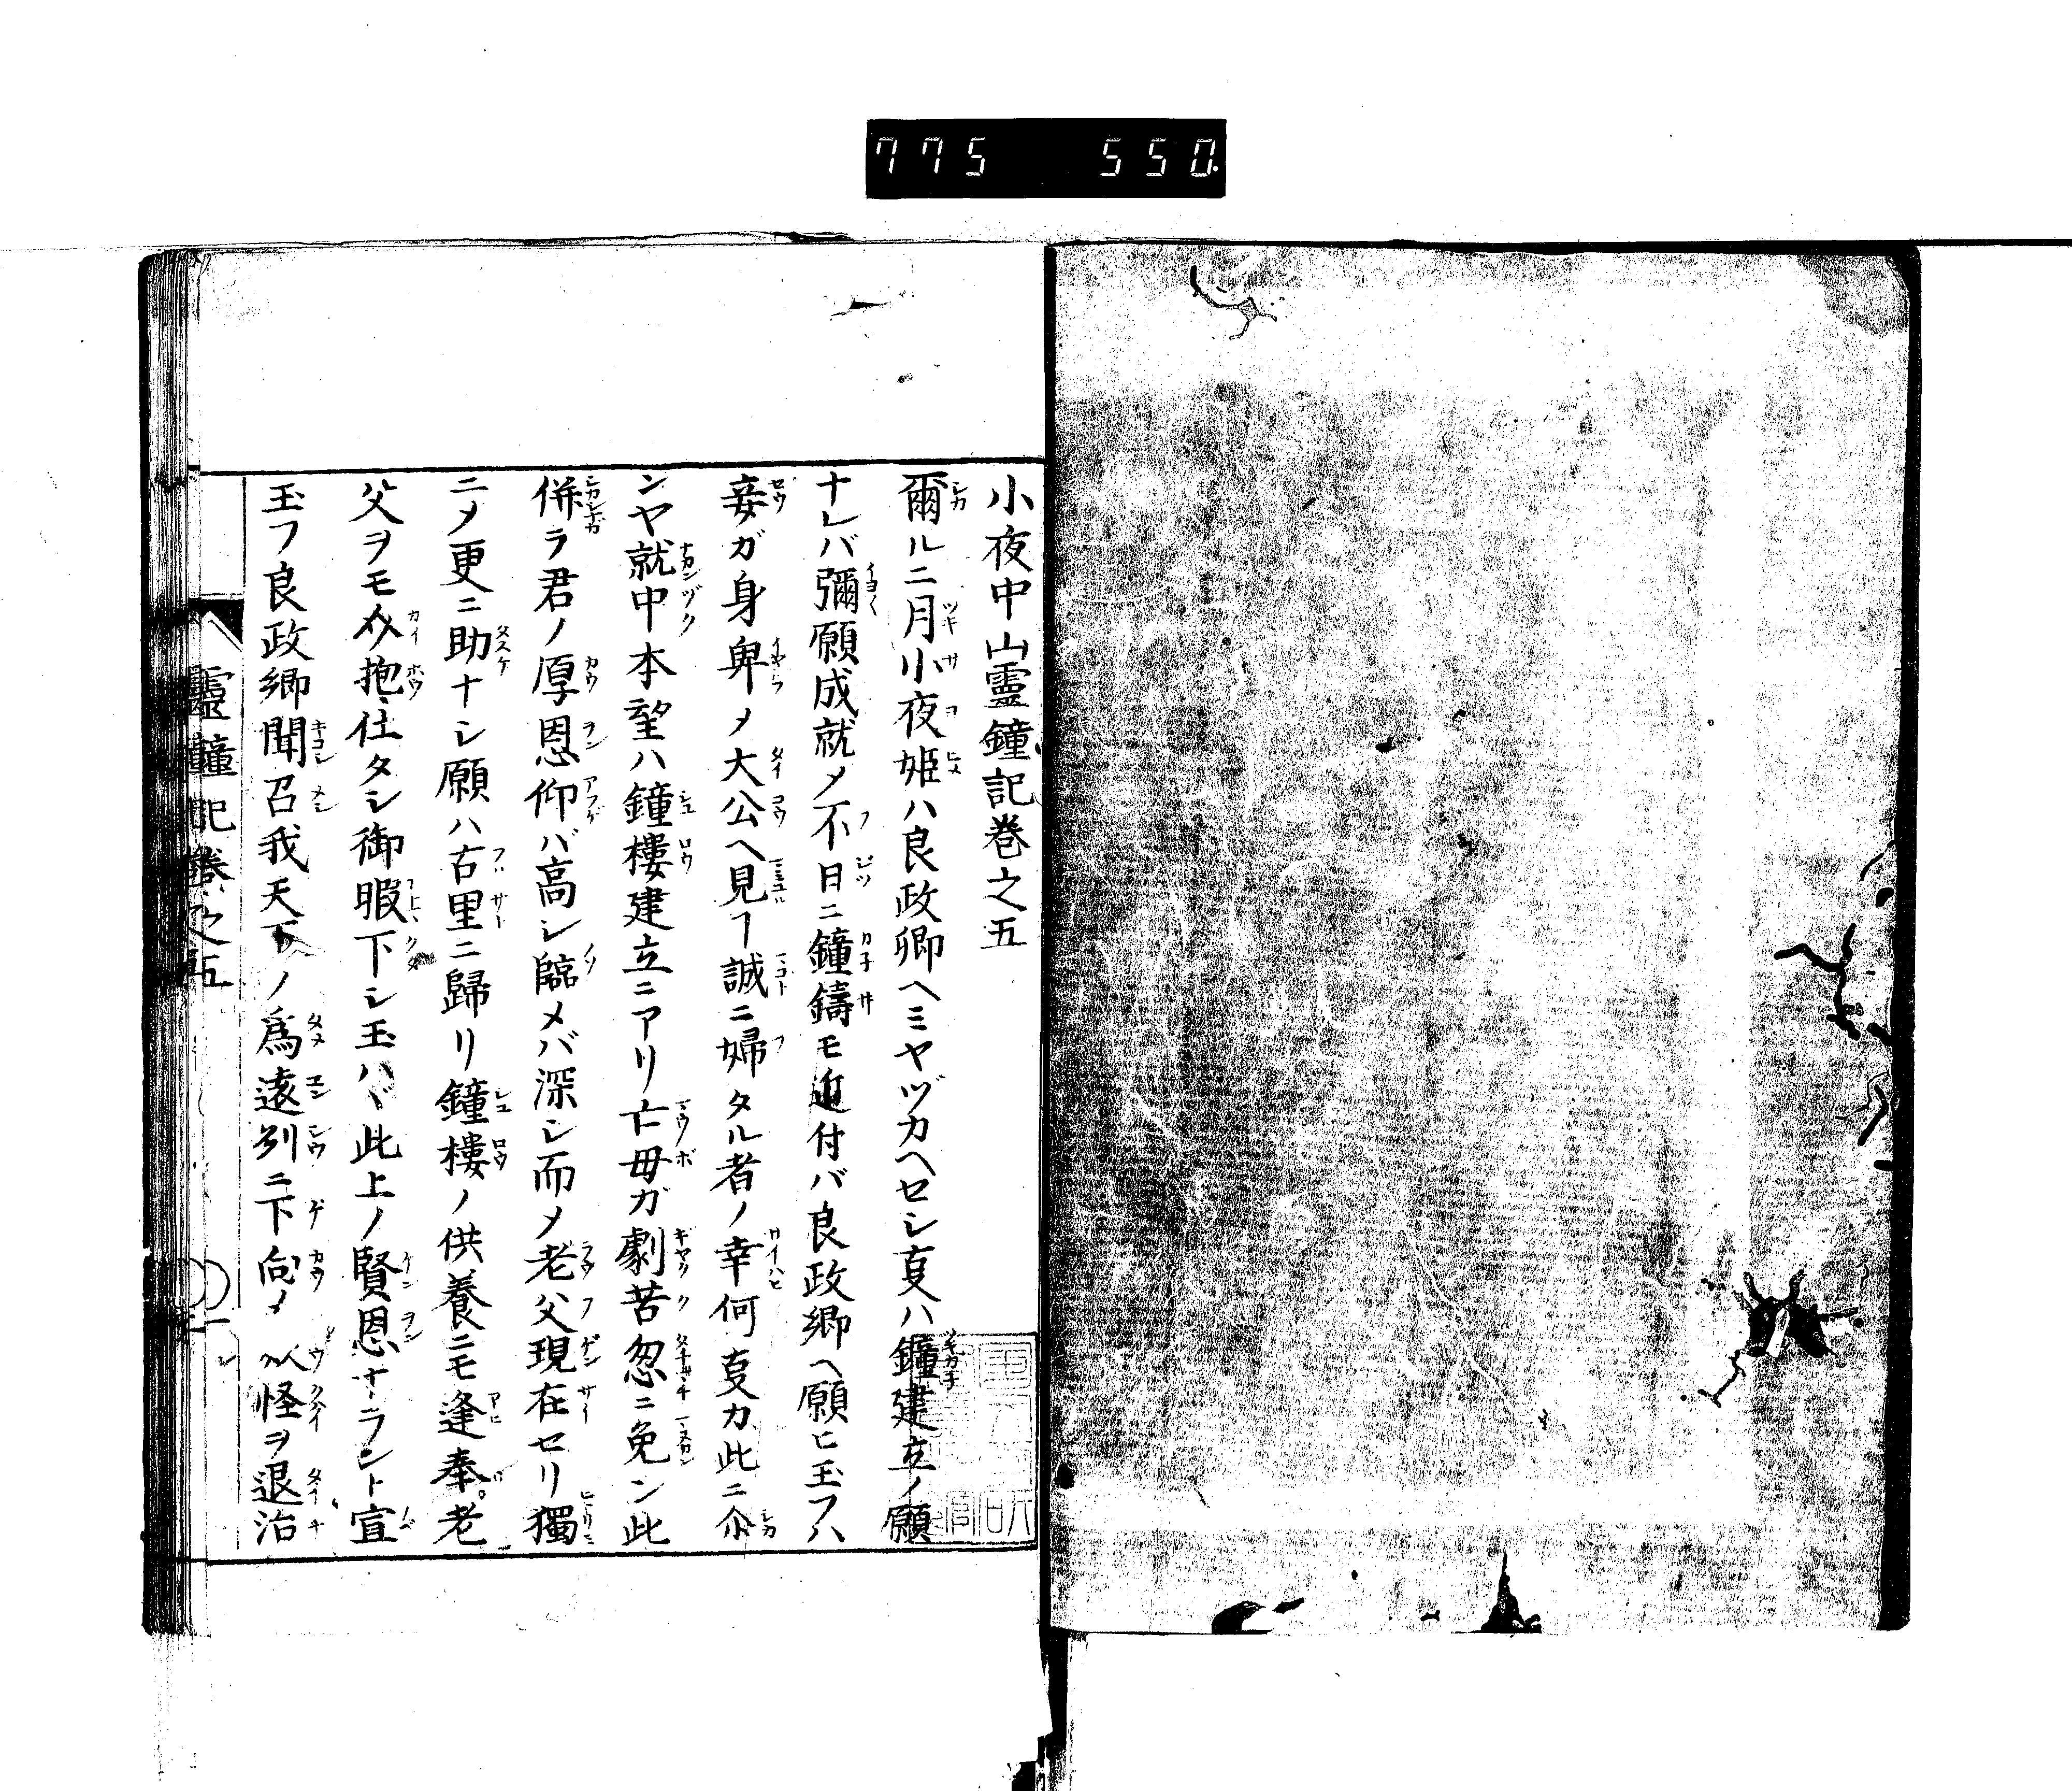 775 550
小夜中山靈鐘記巻之五
爾ルニ月小夜姫ハ良政卿ヘミヤヅカヘセシ㕝ハ鐘建立ノ願
ナレバ彌願成就メ不日ニ鐘鑄モ近付バ良政卿ヘ願ヒ玉フハ
妾ガ身卑メ大公ヘ見ヿ誠ニ婦タル者ノ幸何㕝カ此ニ尒
ンヤ就中本望ハ鐘樓建立ニアリ亡母ガ劇苦忽ニ免ン此
併ラ君ノ厚恩仰バ高シ臨メバ深シ而メ老父現在セリ獨
ニメ更ニ助ナシ願ハ古里ニ歸リ鐘樓ノ供養ニモ逢奉。老
父ヲモ介抱仕タシ御暇下シ玉ハヾ此上ノ賢恩ナラント宣
玉フ良政卿聞召我天下ノ爲遠列ニ下向メ 怪ヲ退治
靈鐘記巻之五